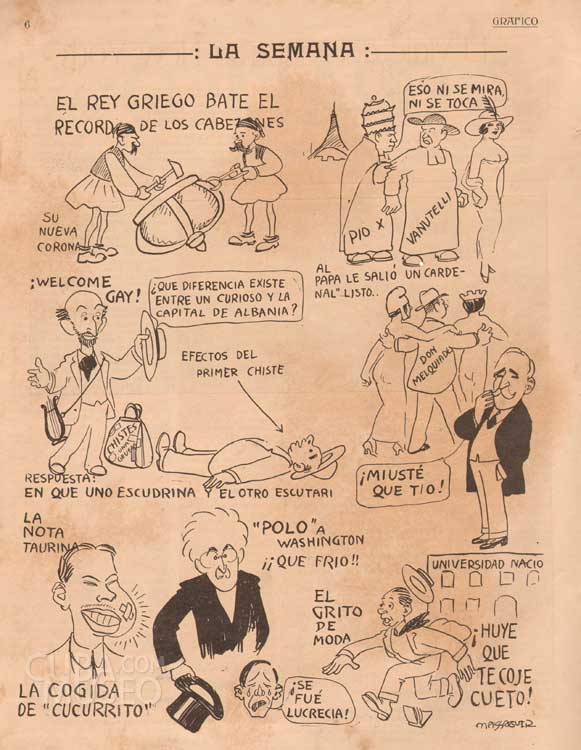 6
GRAFICO
: LA SEMANA :
EL REY GRIEGO BATE EL
RECORD DE LOS CABEZONES
SU
NUEVA
CORONA
ESO NI SE MIRA,
NI SE TOCA
PIO X
VANUTELLI
AL
PAPA LE SALIÓ UN CARDE-
NAL" LISTO..
¡WELCOME
GAY!
¿QUE DIFERENCIA EXISTE
ENTRE UN CURIOSO Y LA
CAPITAL DE ALBANIA?
EFECTOS DEL
PRIMER CHISTE
CHISTES
RESPUESTA:
EN QUE UNO ESCUDRINA Y EL OTRO ESCUTARI
DON
MELQUIADES
¡MIUSTÉ
QUE TIO!
LA
NOTA
TAURINA
LA COGIDA
DE "CUCURRITO"
"POLO" A
WASHINGTON
¡¡QUE FRIO!!
¡SE
FUÉ
LUCRECIA!
EL
GRITO
DE
MODA
UNIVERSIDAD NACIO
¡HUYE
QUE
TE COJE
CUETO!
MASSAGUER
CUBA